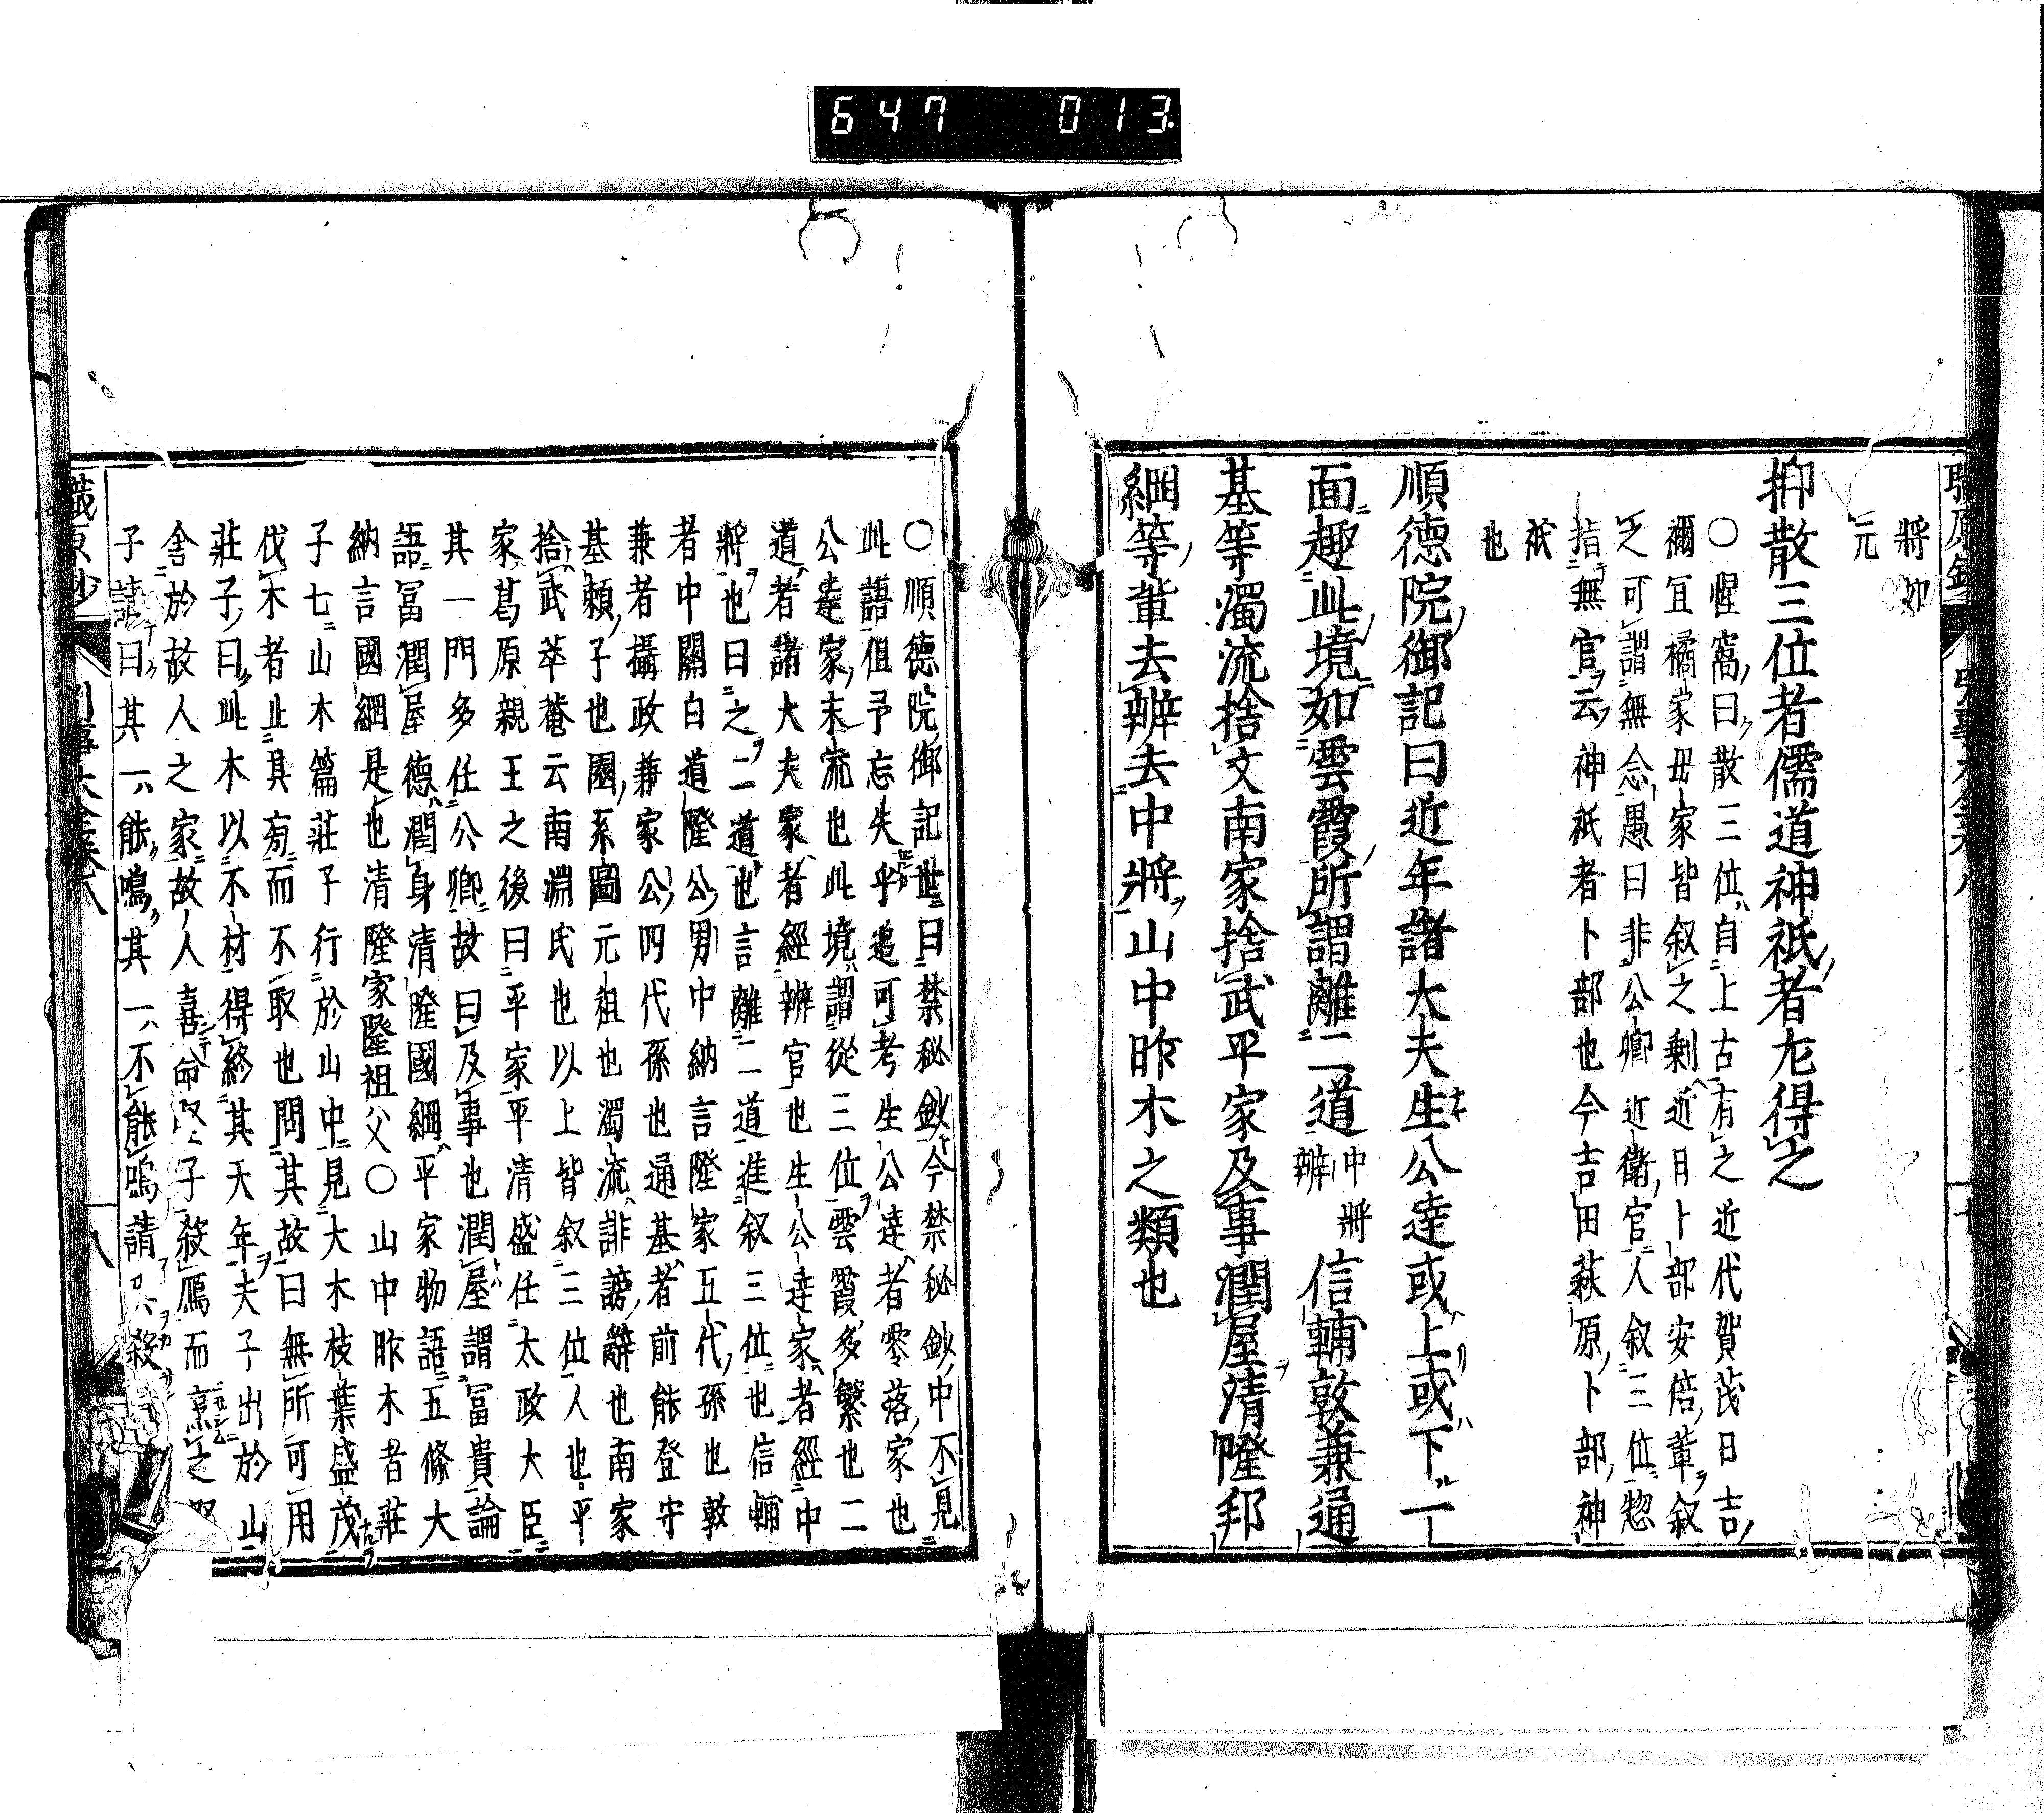 647 013
將卯
元
抑散三位者儒道神祇者尤得之
○惺窩曰散三位自上古有之近代賀茂日吉
禰宜橘家毋家皆叙之剰近日卜部安倍葦叙
之可謂無念愚曰非公卿近衛官人叙三位惣
指無官云神祇者卜部也今吉田萩原卜部神
祇
也
順德院御記曰近年諸大夫生公達或上或下一
面趣此境如雲霞所謂離二道中將辨信輔敦兼通
基等濁流捨文南家捨武平家及事潤屋清隆邦
綱等輩去辨去中將山中昨木之類也
○順德院御記世曰禁秘鈔今禁秘鈔中不見
此語但予忘失乎追可考生公達者零落家也
公達家末流也此境謂從三位雲霞多繁也二
道者諸大夫家者經辨官也生公達家者經中
將也曰之二道也言離二道進叙三位也信輔
者中關白道隆公男中納言隆家五代孫也敦
兼者攝政兼家公四代孫也通基者前能登守
基頼子也園系圖元祖也濁流誹謗辭也南家
捨武萃菴云南淵氏也以上皆叙三位人也平
家葛原親王之後曰平家平清盛任太政大臣
其一門多任公卿故曰及事也潤屋謂冨貴論
語冨潤屋德潤身清隆國綱平家物語五條大
納言國綱是也清隆家隆祖父○山中昨木者莊
子七山木篇莊子行於山中見大木枝葉盛茂
伐木者止其旁而不取也問其故曰無所可用
莊子曰此木以不材得終其天年夫子出於山
舎於故人之家故人喜命竪子殺鴈而烹之
子請曰其一能鳴其一不能鳴請 殺